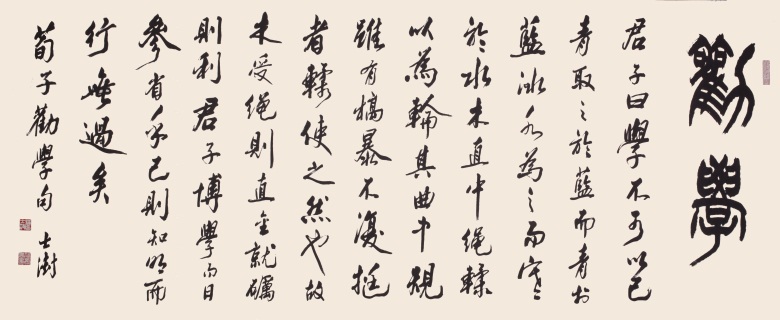 勸學
君子曰學不可以已
青取之於藍而青於
藍冰水為之而寒
於水木直中繩輮
以為輪其曲中規
雖有槁暴不復挺
者輮使之然也故
木受繩則直金就礪
則利君子博學而日
參省乎己則知明而
行無過矣
荀子勸學句 士澍